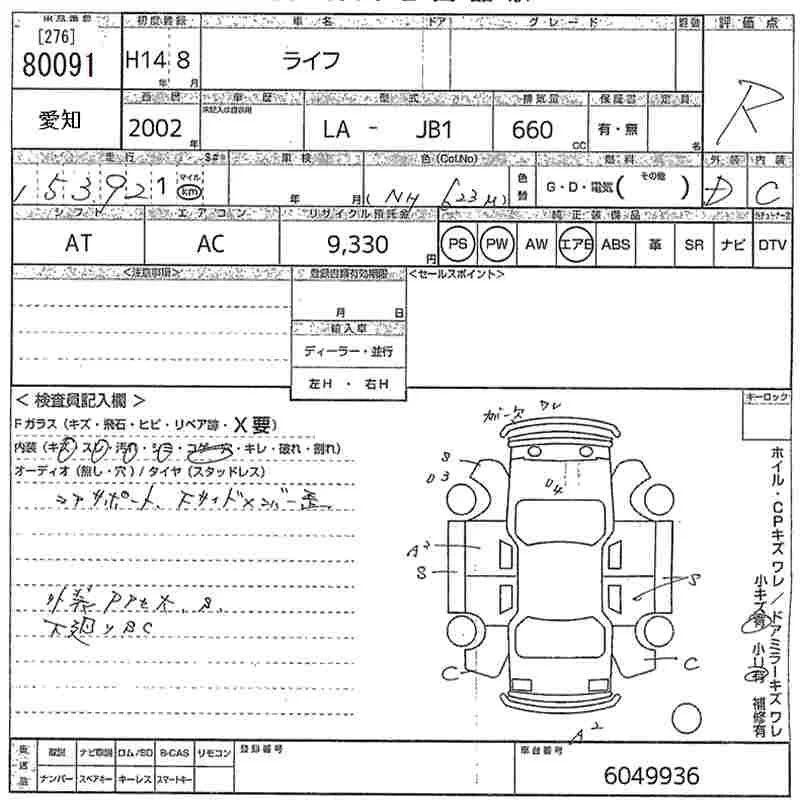 [276]
80091
初度登録
H14 8
年 月
車名
ライフ
ドア
グレード
評価点
R
愛知
西暦
2002
年
車歴
型式
LA - JB1
排気量
660
CC
保証書
有・無
定員
名
走行
153921
マイル
km
車検
年 月
色(Col.No)
(NH 623M)
色替
燃料
G・D・電気( その他 )
外装
D
内装
C
シフト
AT
エアコン
AC
リサイクル預託金
9,330
円
純正装備品
PS PW AW エアB ABS 革 SR ナビ DTV
<注意事項>
登録書類有効期限
月 日
輸入車
ディーラー・並行
左H ・ 右H
<セールスポイント>
< 検査員記入欄 >
Fガラス (キズ・飛石・ヒビ・リペア跡・X要)
内装 (キズ・スレ・汚れ・シミ・コゲ・穴・キレ・破れ・割れ)
オーディオ (無し・穴) / タイヤ (スタッドレス)
コアサポート、下サイドメンバー歪
外装 PPセ大、B、
下廻りBC
キーロック
ガーニ欠 ワレ
S
D3
D4
A2
S
S
C
C
A2
ホイル・CPキズ ワレ / ドアミラーキズ ワレ
小キズ有 小U有 補修有
取説 ナビ取説 ロム/SD B-CAS リモコン
ナンバー スペアキー キーレス スマートキー
登録番号
車台番号
6049936